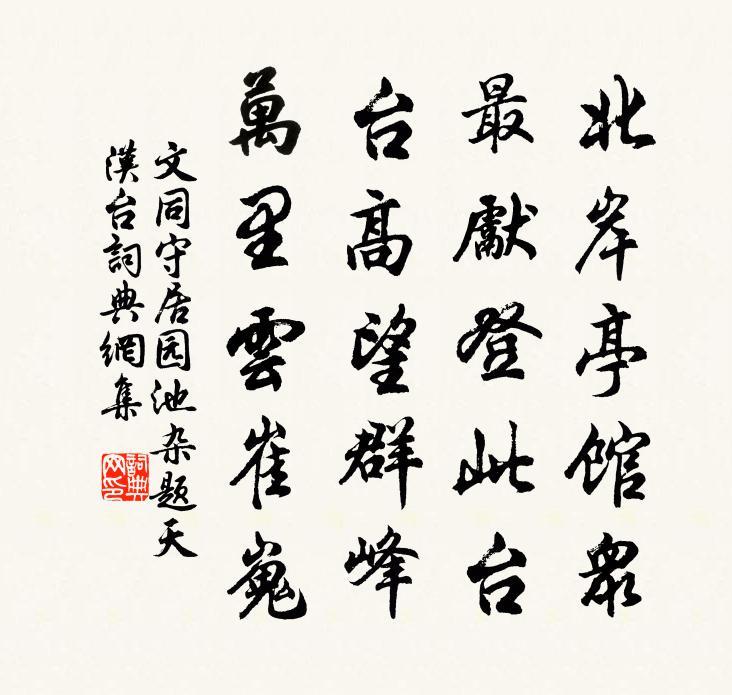 北岸亭館眾
最獻登此台
台高望群峰
萬里雲崔嵬
文同守居园池杂题天
漢台詞典網集
詞典
网